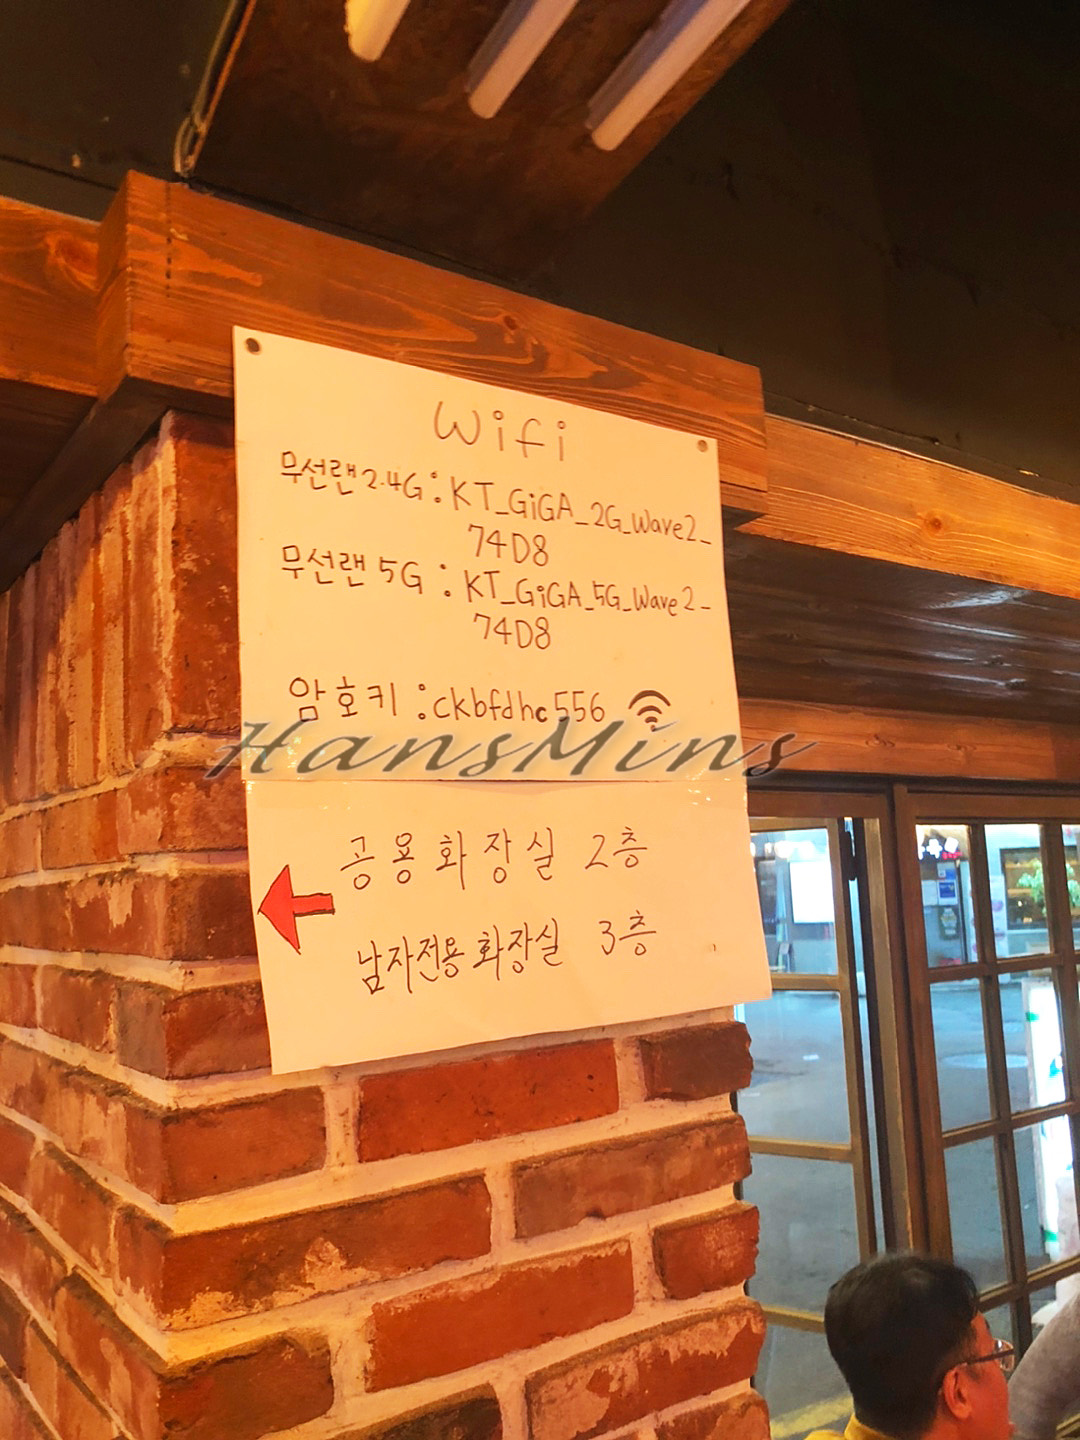 Wifi
무선랜 2.4G : KT_GiGA_2G_Wave2_
74D8
무선랜 5G : KT_GiGA_5G_Wave2_
74D8
암호키 : ckbfdhc556
HansMins
공용화장실 2층
남자전용화장실 3층